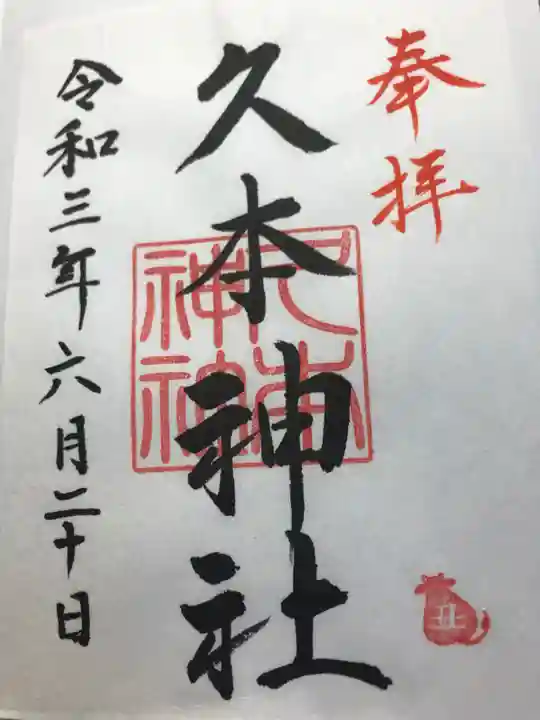 奉拝
久本神社
久本神社
丑
令和三年六月二十日